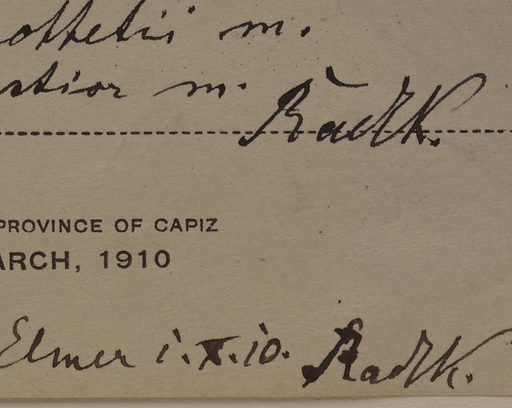 ottetii m.
stior m. Radlk.
PROVINCE OF CAPIZ
ARCH, 1910
Elmer i.X.10. Radlk.